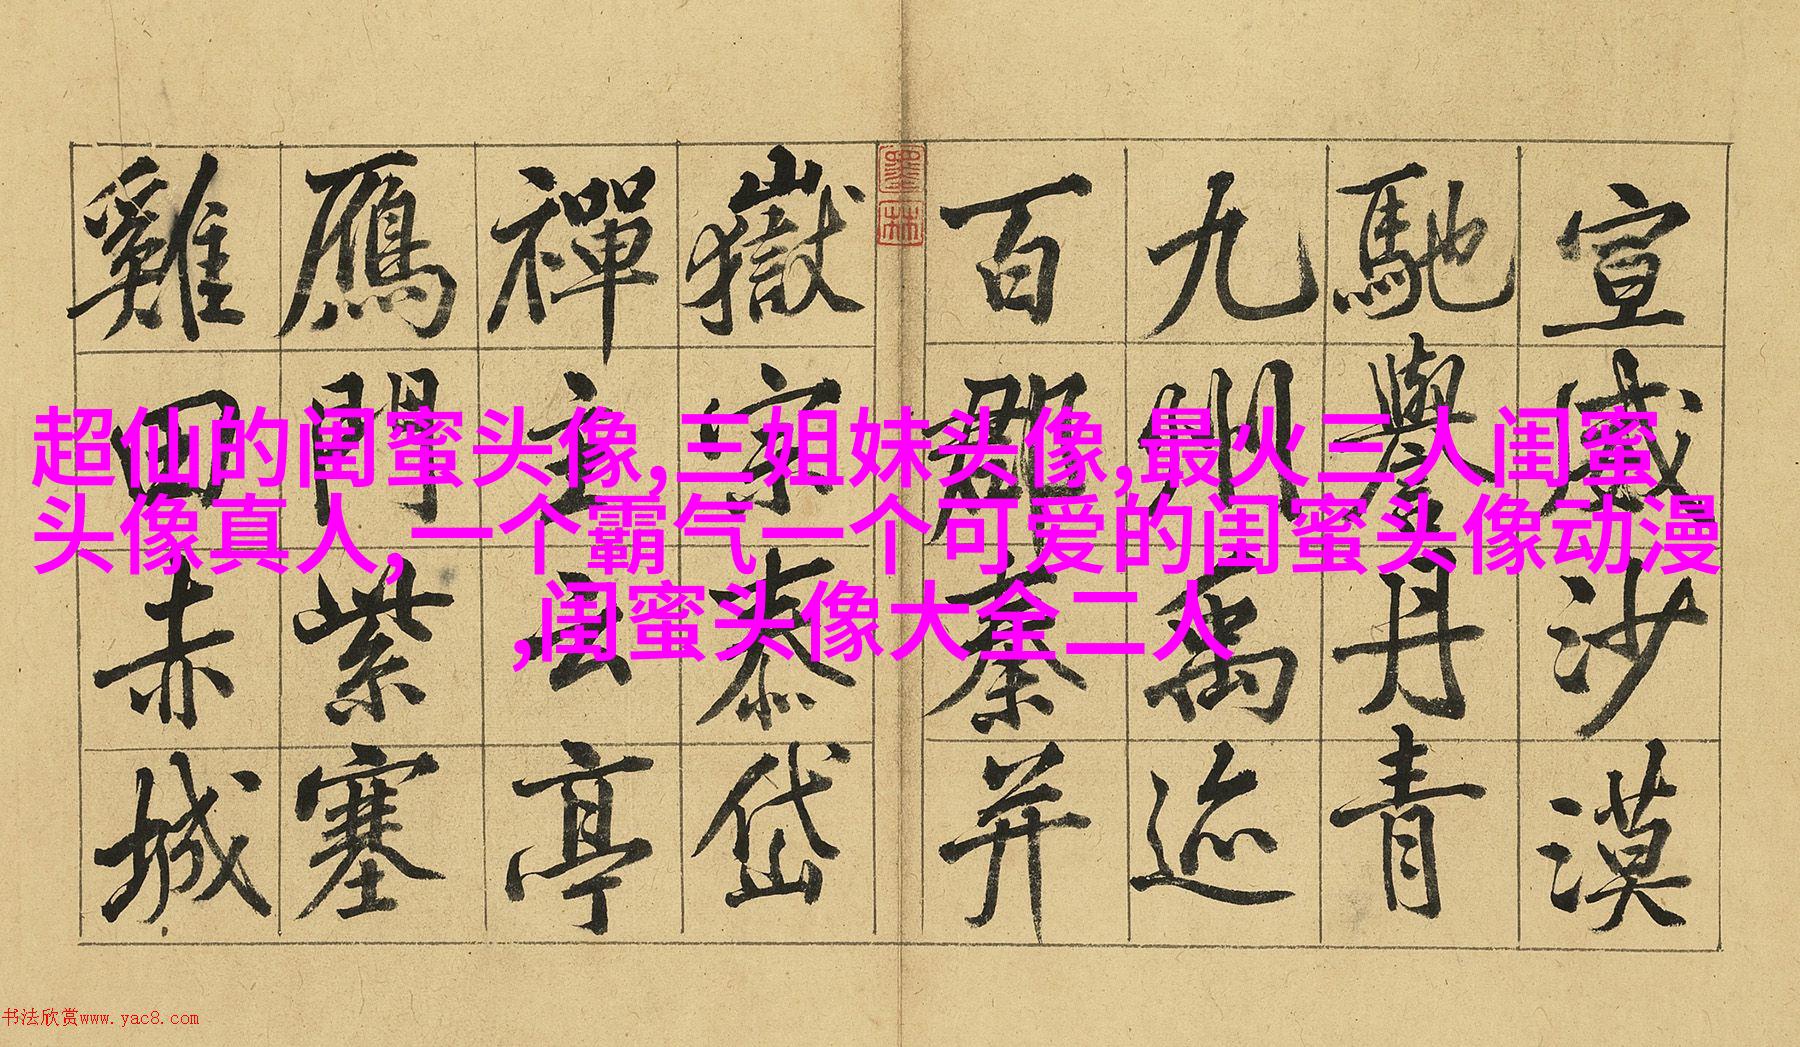 宣威沙漠
馳譽丹青
九州禹迹
百郡秦并
墨林
嶽宗泰岱
禪主云亭
鴈門紫塞
雞田赤城
超仙的闺蜜头像,三姐妹头像,最火三人闺蜜
头像真人,一个霸气一个可爱的闺蜜头像动漫
,闺蜜头像大全二人
书法欣赏www.yac8.com